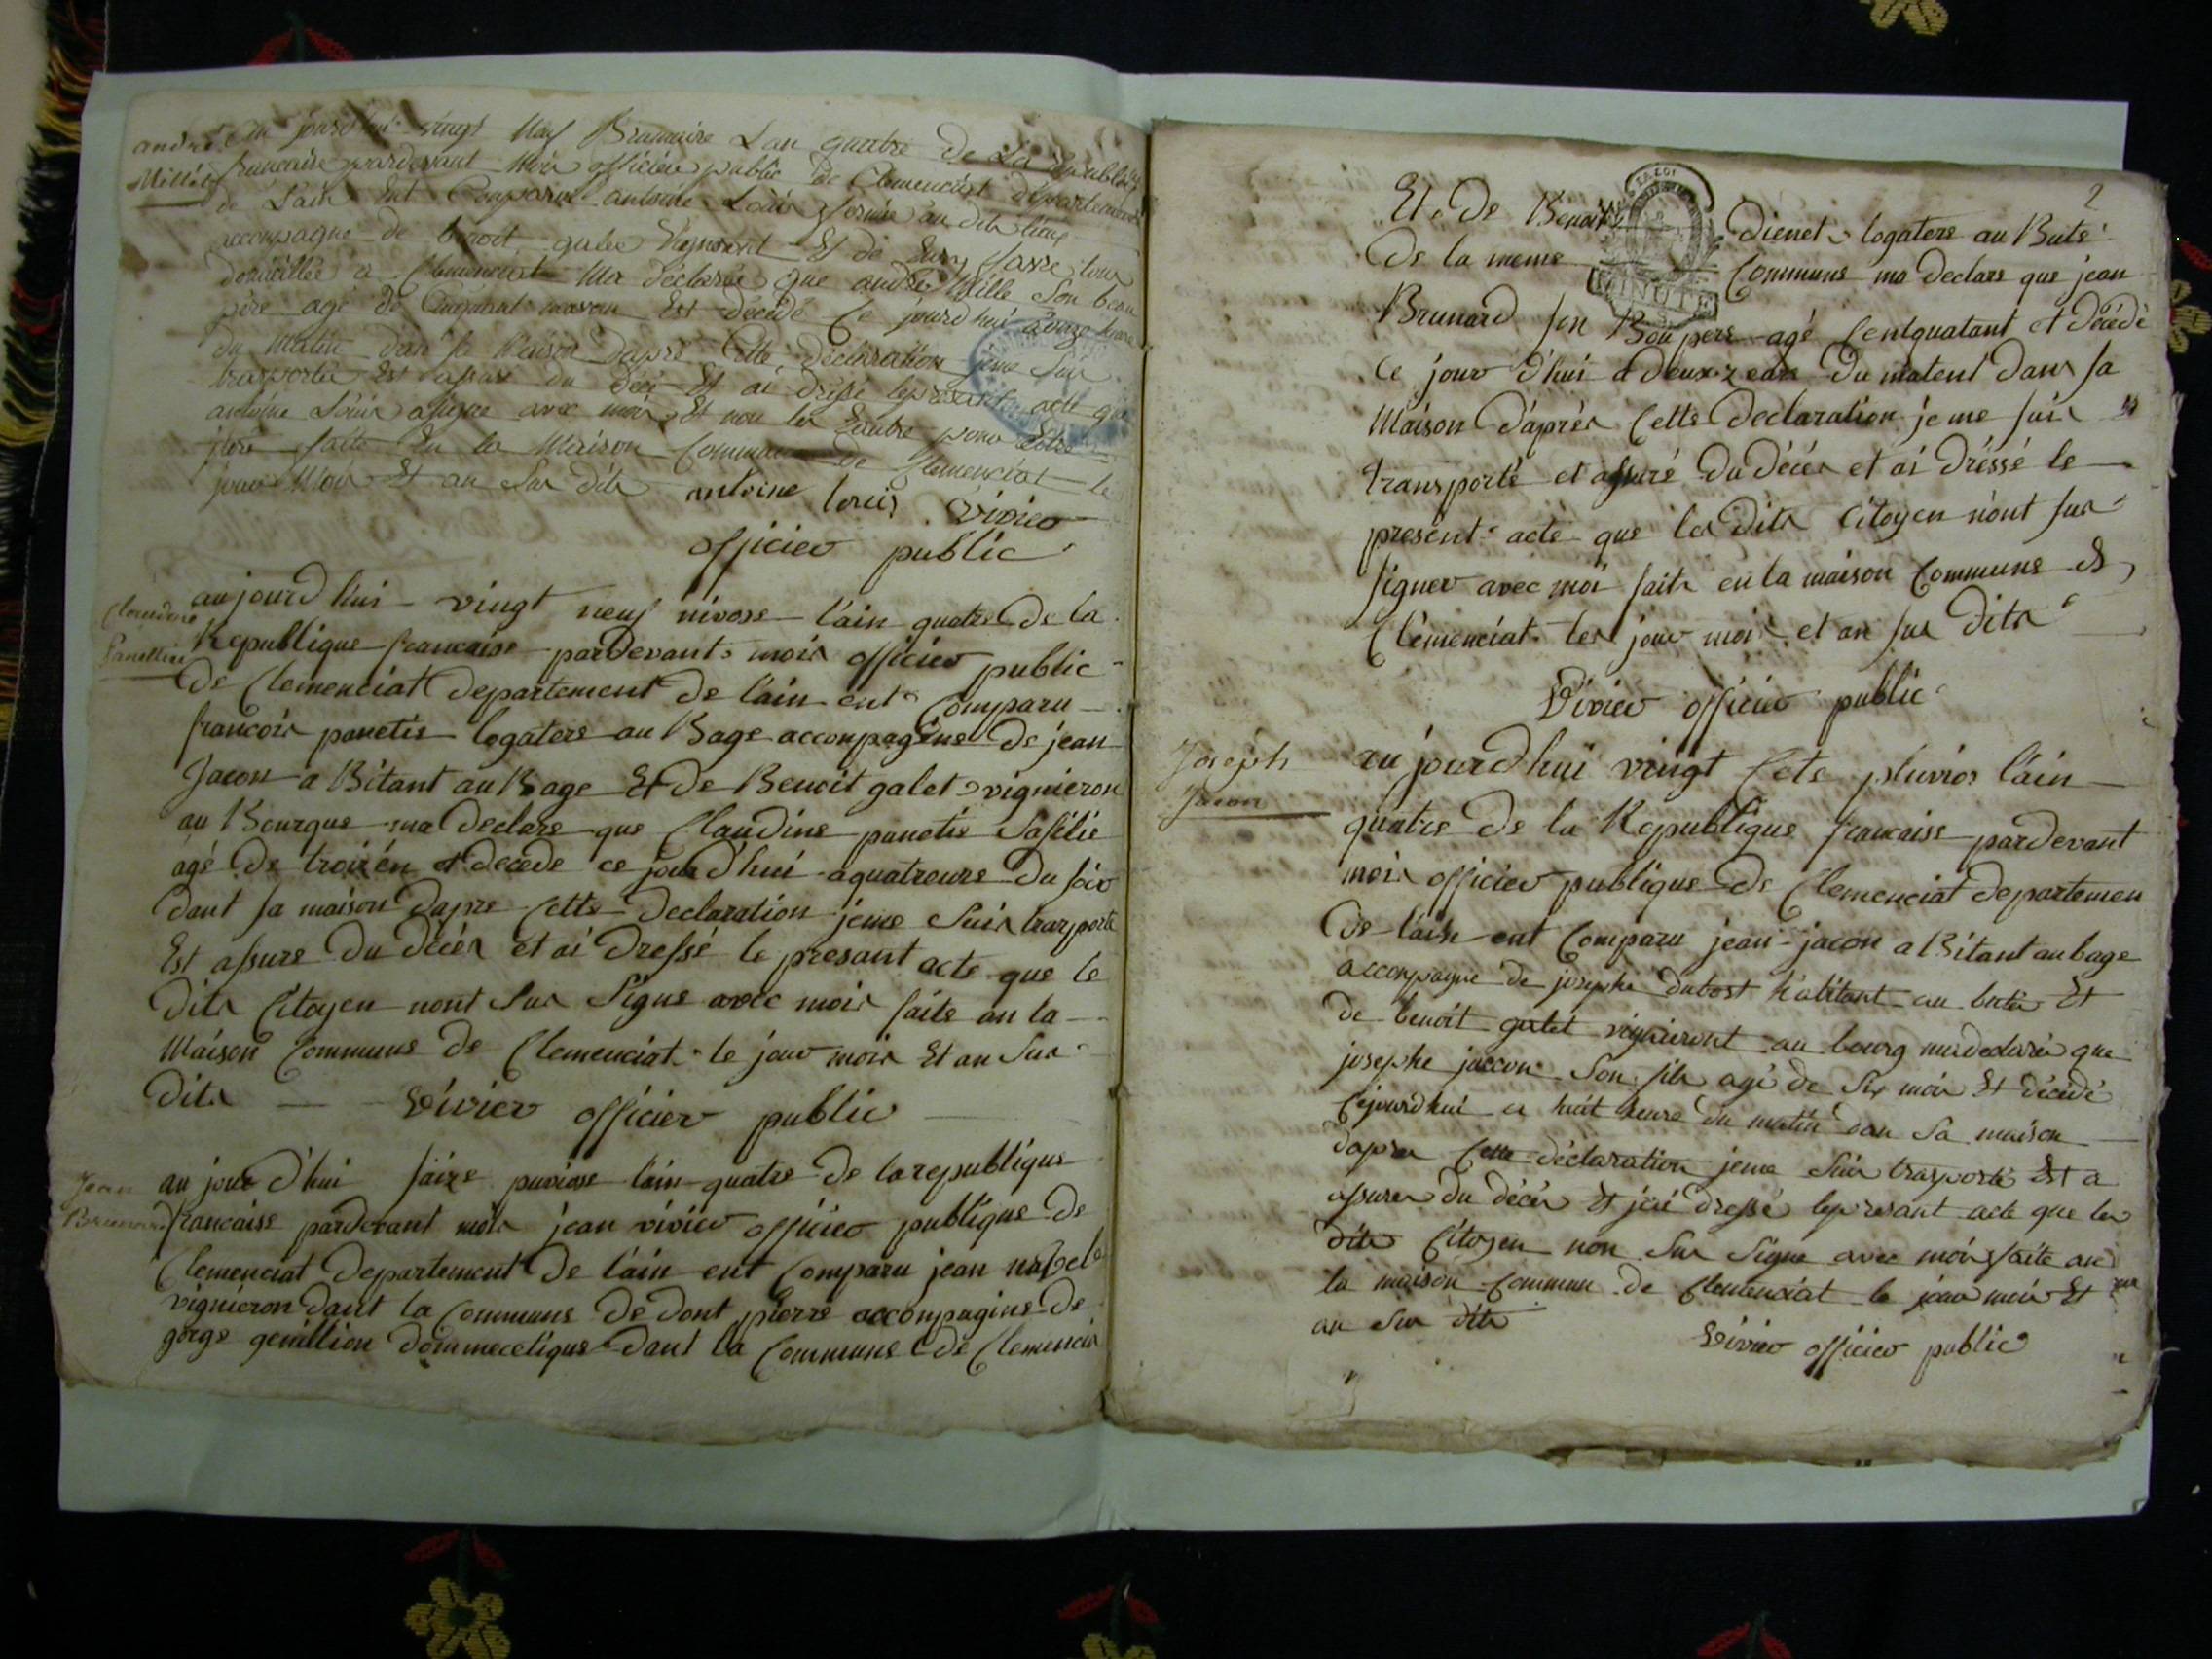 andré
Millé
au jourd'hui vingt neuf Brumaire Lan quatre de La Republique
francaise pardevant Moi officier public de Clemenciat departement
de Lain Ent Comparu antoine Louis fermie au dit lieux
accompagne de benoit galee Vigneront Et de tous
domicillie a Clemenciat Ma declaree que andre Mille Son beau
pere age de est décédé Ce jourd'hui a onze heure
du Matin dan sa Maison Dapre Cette declaration jeme Sui
trasporta Est assure du déce Et ai dresse lepresant acte que
antoine Louis a signe avec moi Et non les Lautre pour
faite En la Maison Commune de Clemenciat le
jour Mois Et an Sus dits antoine louis Vivier
officier public
Claudine
Panettie
aujourd'hui vingt neuf nivose lain quatre De la
Republique francaise pardevant mois officier public
De Clemenciat Departement De lain ent Comparu
francois panetie logatere au Bage accompagine De jean
Jacon a Bitant au Bage Et De Benoit galet vignieron
au Bourgue ma Declare que Claudine panetie Safilie
agé De troix én et decede ce jour d'hui a quatreure Du soir
dant sa maison Dapre Cette Declaration jeme Suis trasporte
Est assure Du décés et ai Dressé le presant acte que le
Dits Citoyen nont Sus Signe avec mois faite an la
Maison Commune De Clemenciat le jour mois Et an Sus
Dits Vivier officier public
Jean
Brunard
au jour d'hui saize puviose lain quatre De la republique
francaise pardevant mois jean vivier officier publique De
Clemenciat Departement De lain ent Comparu jean
vignieron dant la Commune De Dont pierre accompagine De
gorge genillion Dommecetique Dant la Commune De Clemencia
2
Et De Benoit Dienet logatere au Buté
De la meme Commune ma Declare que jean
Brunard son Bou pere agé Centquatant et Décédé
Ce jour d'hui a Deux zeure Du matent Dans sa
Maison Dáprés Cette Declaration je me suis
transporté et assuré Du Décés et ai Dréssé le
present acte que les Dits Citoyen n'ont sus
signer avec moi faits en la maison Commune De
Clémenciat les jour mois et an sus Dits
Vivier officier public
LA LOI
MINUTE
Joseph
Jacon
au jourd'hui vingt Sete pluvios láin
quatre De la Republique francaise pardevant
mois officier publique De Clemenciat departemen
De láin ent Comparu jean jacon a Bitant au bage
accompagne de josephe dubost habitant au buté Et
de benoit galet vignieront au bourg ma declaré que
josephe jaccon Son fils agé de Six mois Et décédé
Cejourd'hui a huit heure du matin dan Sa maison
dapre Cette déclaration jeme Suis trasporté Est a
assurer du décés Et jai dressé lepresant acte que les
dits Citoyen non Sus Signe avec moi faite an
la maison Commun de Clemenciat le jour mois Et
an Sus dits
Vivier officier public